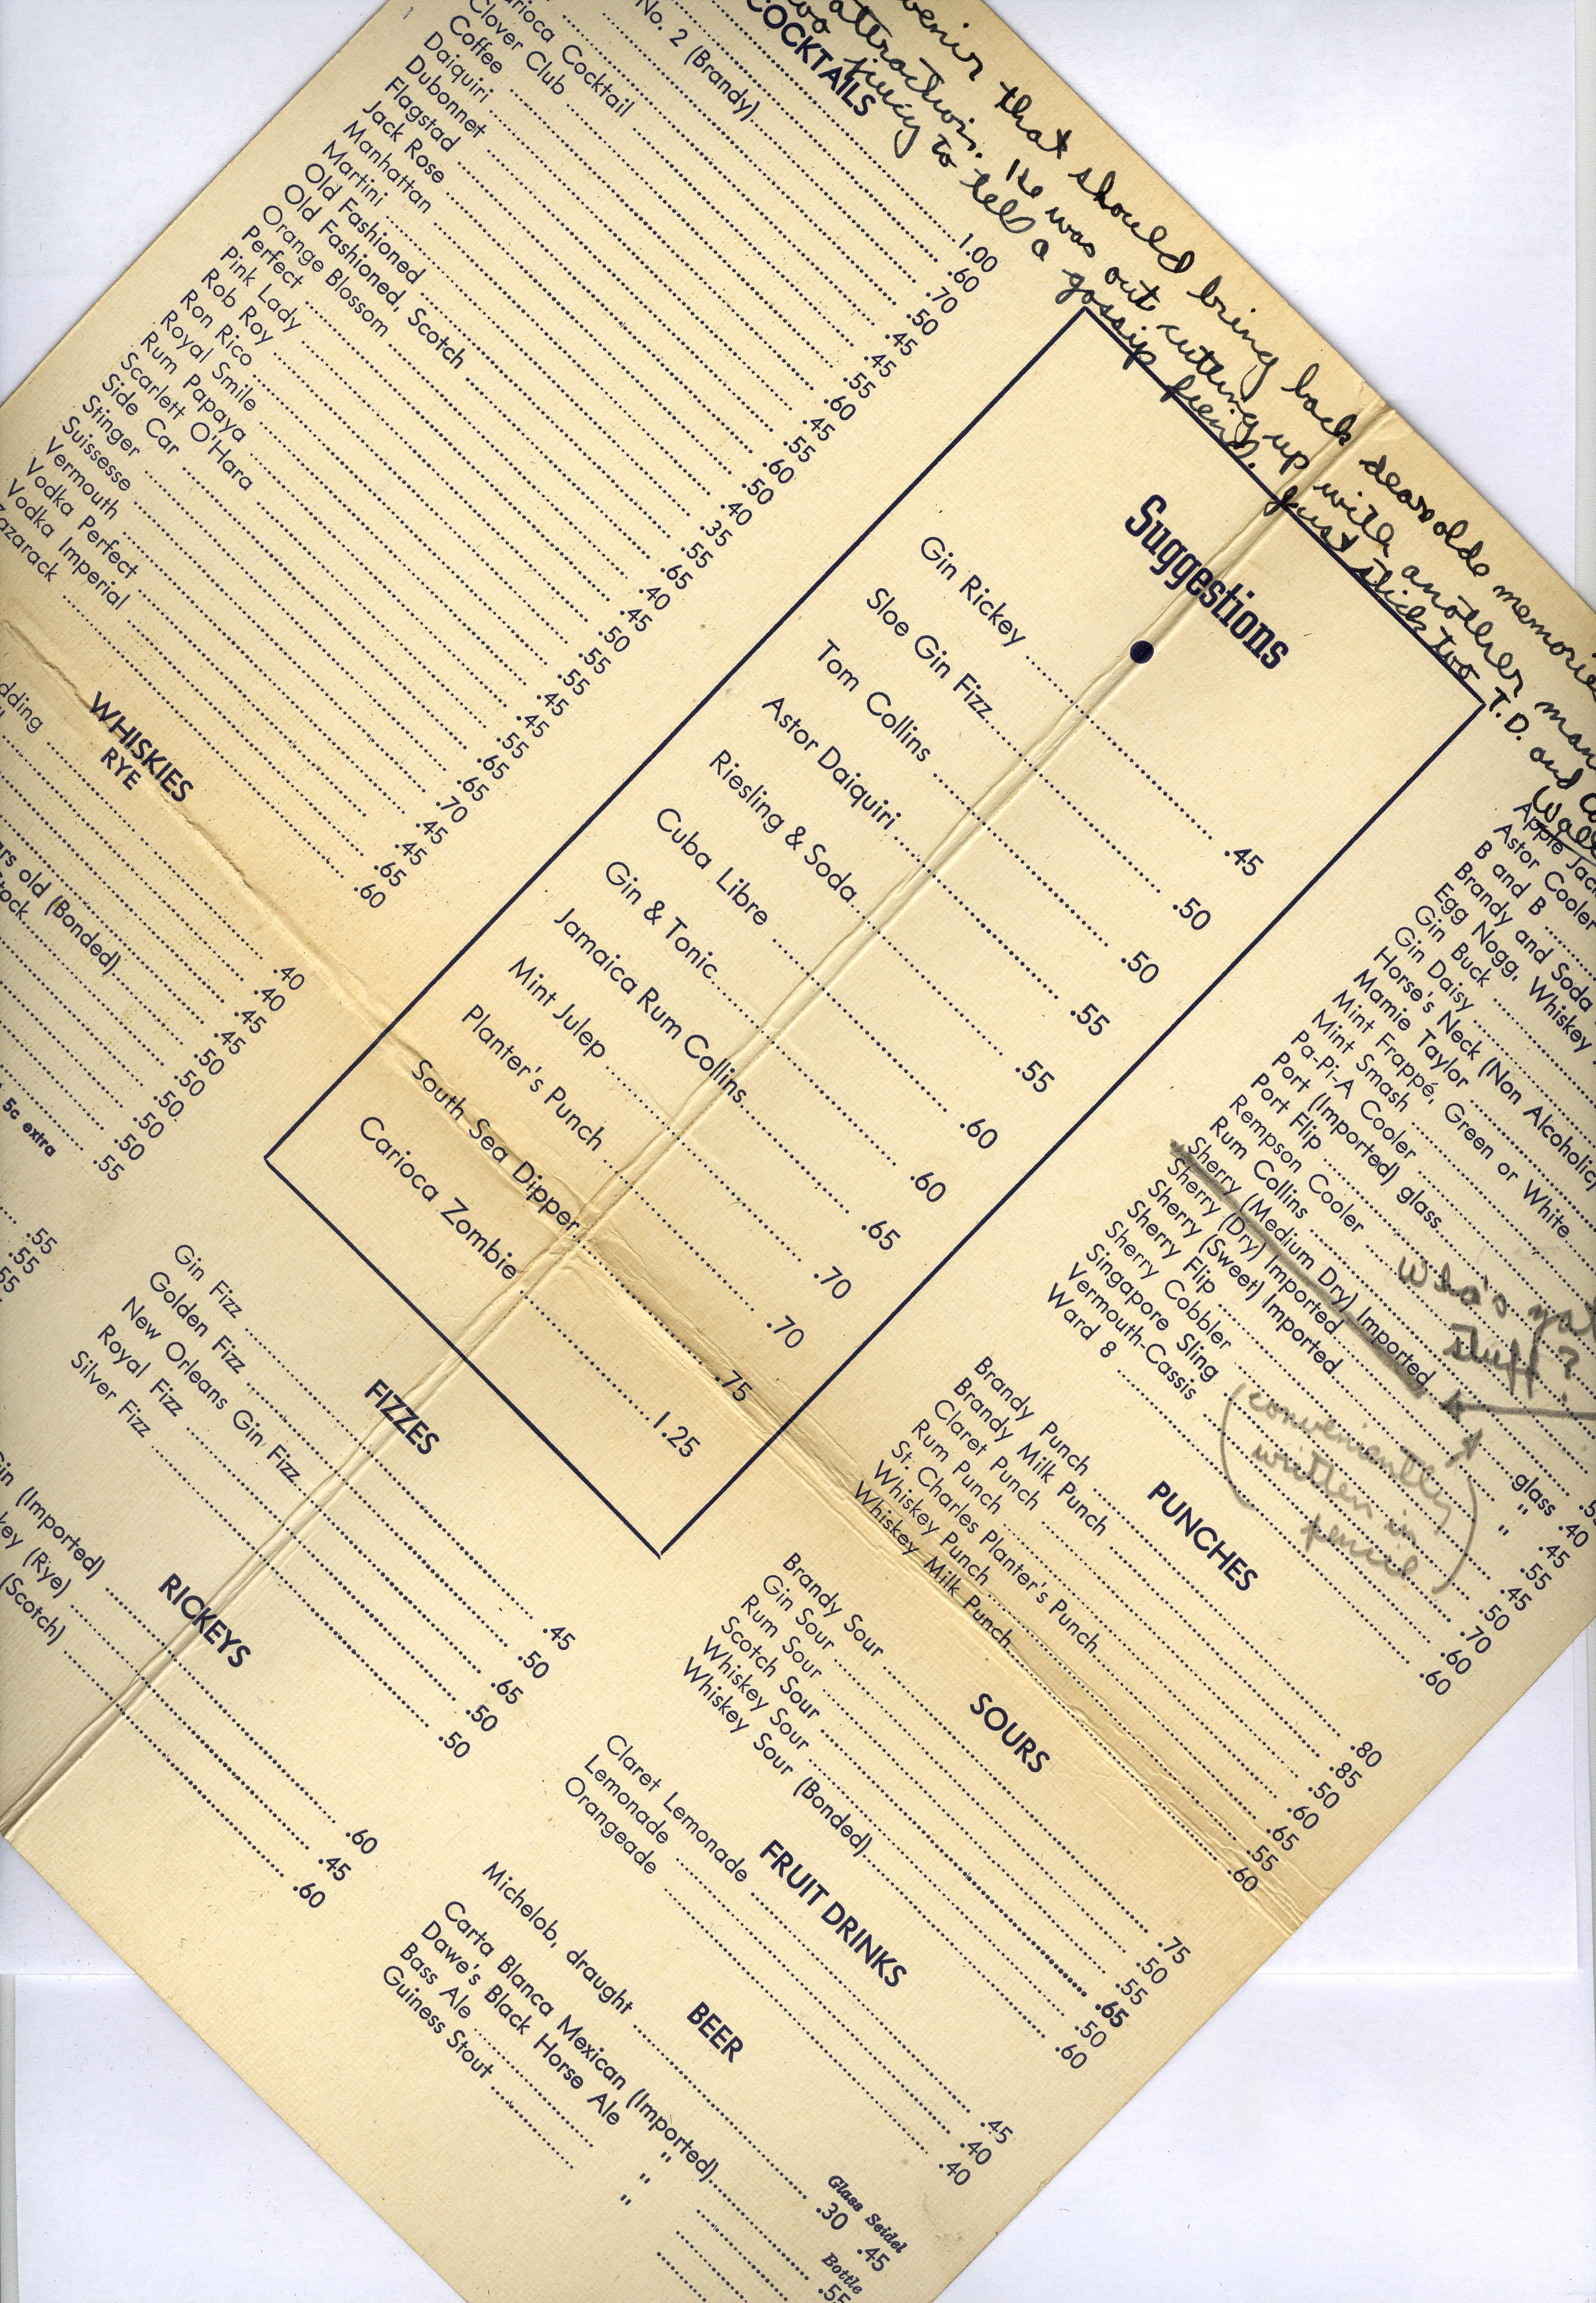 venir that should bring back dear olde memories
two attractions. He was out cutting up with another man
juicy to tell a gossip fiend. Just stick two T.D. and
COCKTAILS
1.00
.60
.70
No. 2 (Brandy)
.50
.45
arioca Cocktail .45
Clover Club .55
Coffee .60
Daiquiri .45
Dubonnet .55
Flagstad .60
Jack Rose .50
Manhattan .40
Martini .35
Old Fashioned .55
Old Fashioned, Scotch .65
Orange Blossom .40
Perfect .45
Pink Lady .50
Rob Roy .55
Ron Rico .55
Royal Smile .45
Rum Papaya .45
Scarlett O'Hara .55
Side Car .65
Stinger .65
Suissesse .70
Vermouth .45
Vodka Perfect .45
Vodka Imperial .65
azarack .60
WHISKIES
RYE
dding .40
.40
.45
.45
.50
rs old (Bonded) .50
tock .50
.50
.50
.55
5c extra
.55
.55
.55
Suggestions
Gin Rickey .45
Sloe Gin Fizz .50
Tom Collins .50
Astor Daiquiri .55
Riesling & Soda .55
Cuba Libre .60
Gin & Tonic .60
Jamaica Rum Collins .65
Mint Julep .70
Planter's Punch .70
South Sea Dipper .75
Carioca Zombie 1.25
FIZZES
Gin Fizz .45
Golden Fizz .50
New Orleans Gin Fizz .65
Royal Fizz .50
Silver Fizz .50
RICKEYS
in (Imported) .60
key (Rye) .45
(Scotch) .60
Apple Jac
Astor Cooler
B and B
Brandy and Soda
Egg Nogg, Whiskey
Gin Buck
Gin Daisy
Horse's Neck (Non Alcoholic)
Mamie Taylor
Mint Frappé, Green or White
Mint Smash
Pa-Pi-A Cooler
Port (Imported) glass
Port Flip
Rempson Cooler
Rum Collins
Sherry (Medium Dry) Imported glass .40
Sherry (Dry) Imported " .45
Sherry (Sweet) Imported " .55
Sherry Flip .45
Sherry Cobbler .50
Singapore Sling .70
Vermouth-Cassis .60
Ward 8 .60
Who's
stuff?
(conveniently
written in
pencil)
PUNCHES
Brandy Punch .80
Brandy Milk Punch .85
Claret Punch .50
Rum Punch .60
St. Charles Planter's Punch .65
Whiskey Punch .55
Whiskey Milk Punch .60
SOURS
Brandy Sour .75
Gin Sour .50
Rum Sour .55
Scotch Sour .65
Whiskey Sour .50
Whiskey Sour (Bonded) .60
FRUIT DRINKS
Claret Lemonade .45
Lemonade .40
Orangeade .40
BEER
Glass Seidel
Michelob, draught .30 .45
Bottle
Carta Blanca Mexican (Imported) .55
Dawe's Black Horse Ale "
Bass Ale "
Guiness Stout "